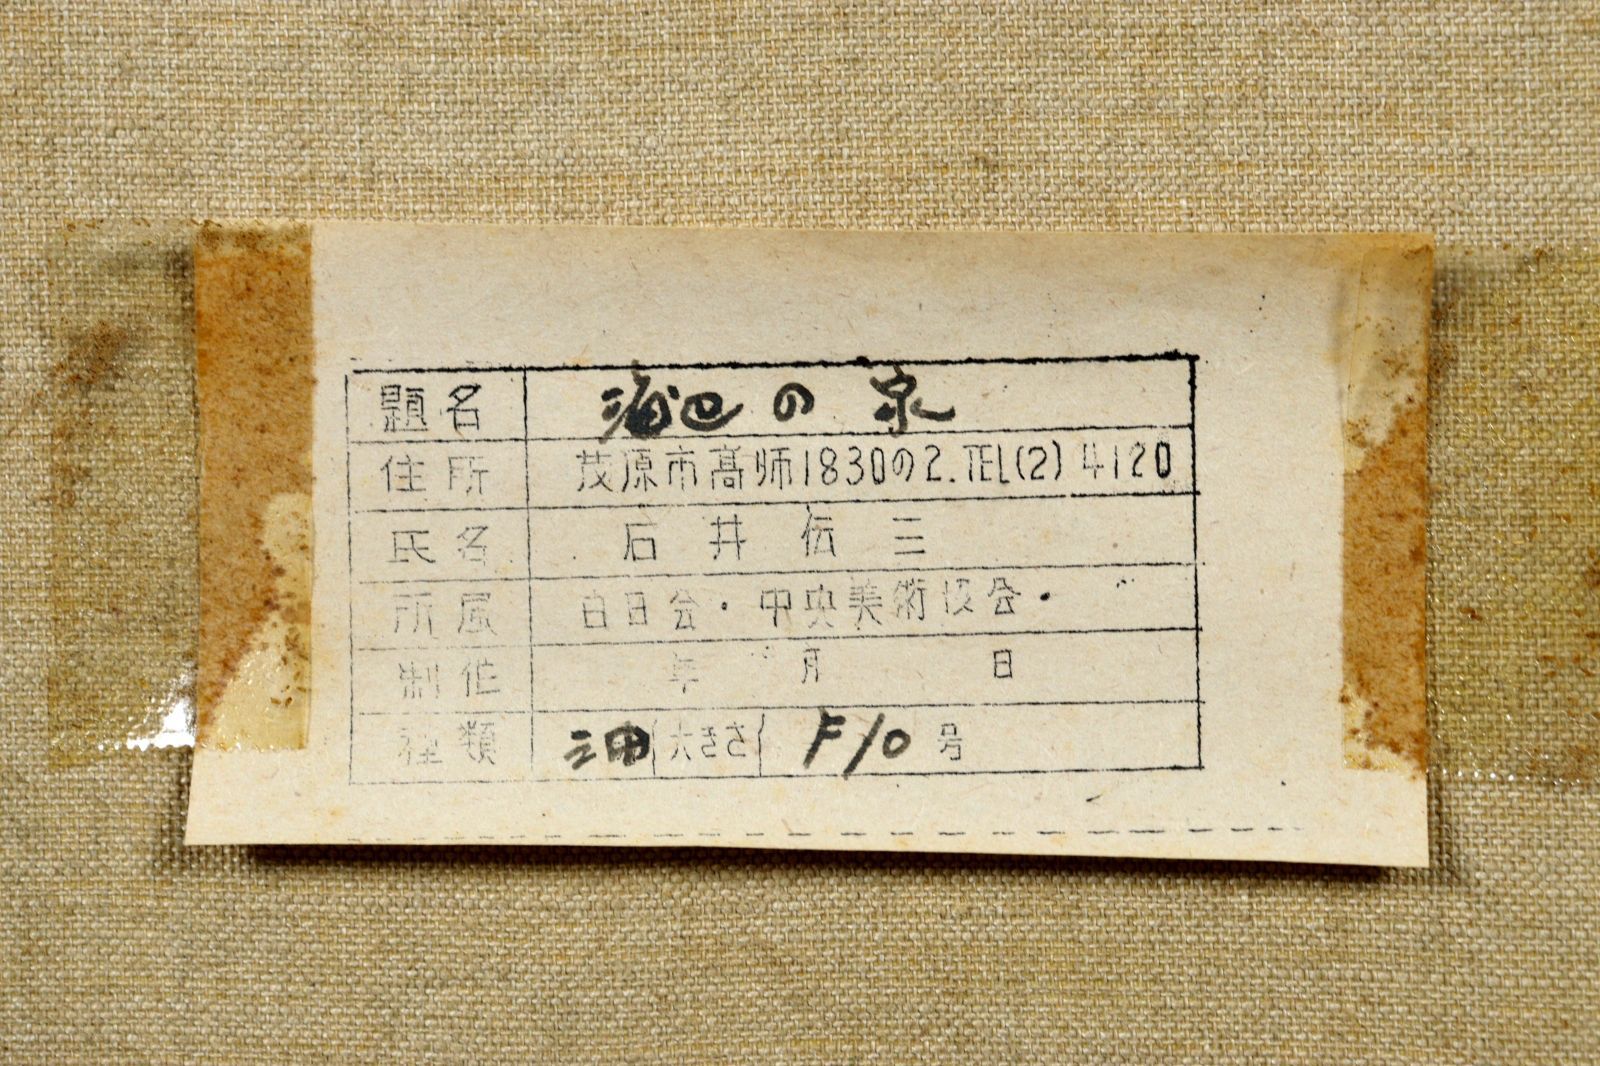 題名 海辺の
住所 茂原市高師1830の2.TEL(2)4120
氏名 石井伝三
所属 白日会・中央美術協会・
制作 年 月 日
種類 油 大きさ F10号